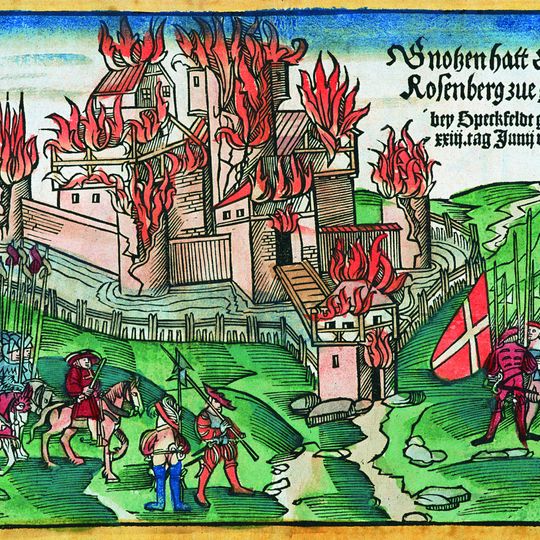 Gnotzen hatt
Rosenberg zue
bey Speckfeldt
xxiij. tag Junij